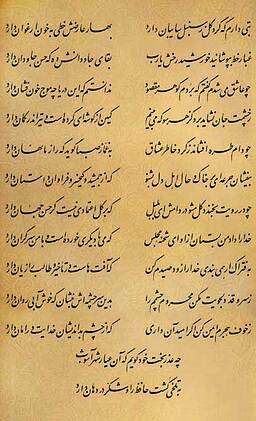 بتی دارم که گرد گل ز سنبل سایبان دارد
بهار عارضش خطی به خون ارغوان دارد
غبار خط بپوشانید خورشید رخش یا رب
بقای جاودانش ده که حسن جاودان دارد
چو عاشق می‌شدم گفتم که بردم گوهر مقصود
ندانستم که این دریا چه موج خون فشان دارد
ز چشمت جان نشاید برد کز هر سو که می‌بینم
کمین از گوشه‌ای کرده‌ست و تیر اندر کمان دارد
چو دام طره افشاند ز گرد خاطر عشاق
به غماز صبا گوید که راز ما نهان دارد
بیفشان جرعه‌ای بر خاک و حال اهل دل بشنو
که از جمشید و کیخسرو فراوان داستان دارد
چو در رویت بخندد گل مشو در دامش ای بلبل
که بر گل اعتمادی نیست گر حسن جهان دارد
خدا را داد من بستان از او ای شحنه مجلس
که می با دیگری خورده‌ست و با من سر گران دارد
به فتراک ار همی‌بندی خدا را زود صیدم کن
که آفت‌هاست در تأخیر و طالب را زیان دارد
ز سرو قد دلجویت مکن محروم چشمم را
بدین سرچشمه‌اش بنشان که خوش آبی روان دارد
ز خوف هجرم ایمن کن اگر امید آن داری
که از چشم بداندیشان خدایت در امان دارد
چه عذر بخت خود گویم که آن عیار شهرآشوب
به تلخی کشت حافظ را و شکر در دهان دارد